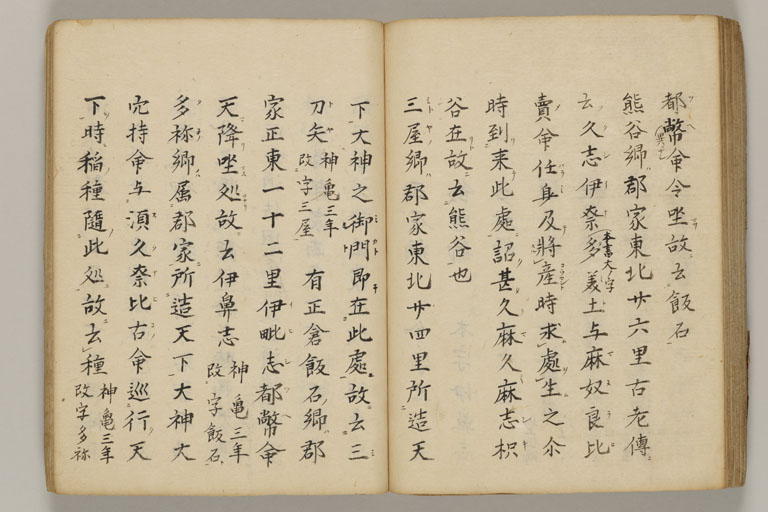 都幣命令坐故云飯石
熊谷郷郡家東北廿六里古老傳
云久志伊奈多美土与麻奴良比
賣命任身及將産時求處生之尒
時到来此處詔甚久麻久麻志枳
谷在故云熊谷也
三屋郷郡家東北廿四里所造天
下大神之御門即在此處故云三
刀矢神亀三年改字三屋有正倉飯石郷郡
家正東一十二里伊毗志都幣命
天降坐処故云伊鼻志神亀三年改字飯石
多祢郷属郡家所造天下大神大
穴持命与湏久奈比古命巡行天
下時稲種随此処故云種神亀三年改字多祢